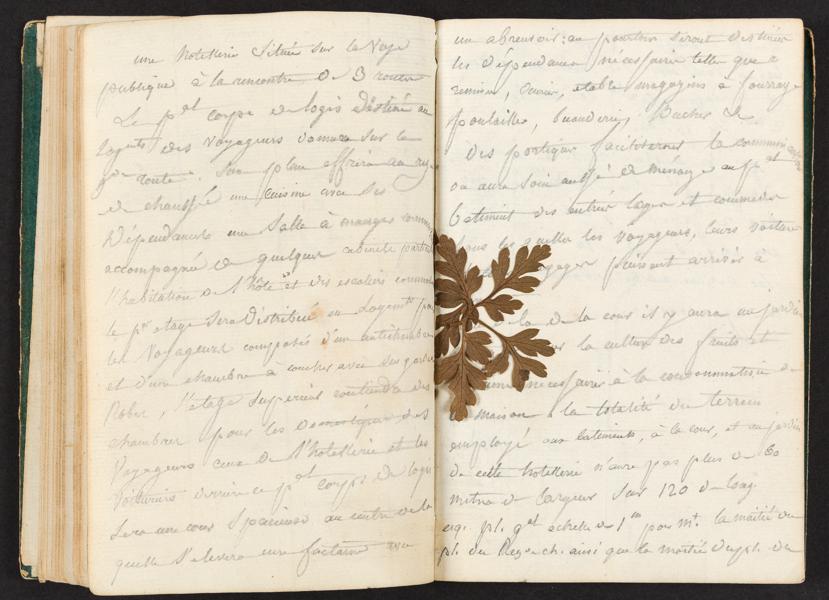 une hotellerie située sur la voye
publique à la rencontre de 3 routes
Le p.al corps de logis destiné au
logmts des voyageurs donnera sur la
g.de route. Son plan offrira au rez
de chaussé une cuisine avec ses
dépendances une salle à manger commune
accompagné de quelques cabinets particul
l'habitation de l'hôte et des escaliers commodes
le p.er etage sera distribué en logemts pour
les voyageurs composés d'un antichambre
et d'une chambre à coucher avec des garde
Robes, l'etage superieur contiendra des
chambres pour les domestiques des
voyageurs ceux de l'hotellerie et les
voituriers derrière ce p.al corps de logis
sera une cour spacieuse au centre de la
quelle s'elevera une fontaine avec
un abreuvoir: au pourtour seront destinées
les dépendances nécessaires telles que
remises, écuries, etables magazins a fourrage
poulailler, buanderie, bucher &c
Des portiques faciliteront la communication
on aura soin de ménager au p.al
batiment des entrées larges et commodes
les voyageurs, leurs voitures
puissent arriver à
de la cour il y aura un jardin
la culture des fruits et
nécessaires à la consommation de
maison la totalité du terrein
employé aux batiments, à la cour, et au jardin
de cette hotellerie n'aura pas plus de 60
metres de largeur sur 120 de long
pl. g.al echelle de 1m pour mt. la moitié du
pl. du Rez de ch. ainsi que la moitié du pl. du